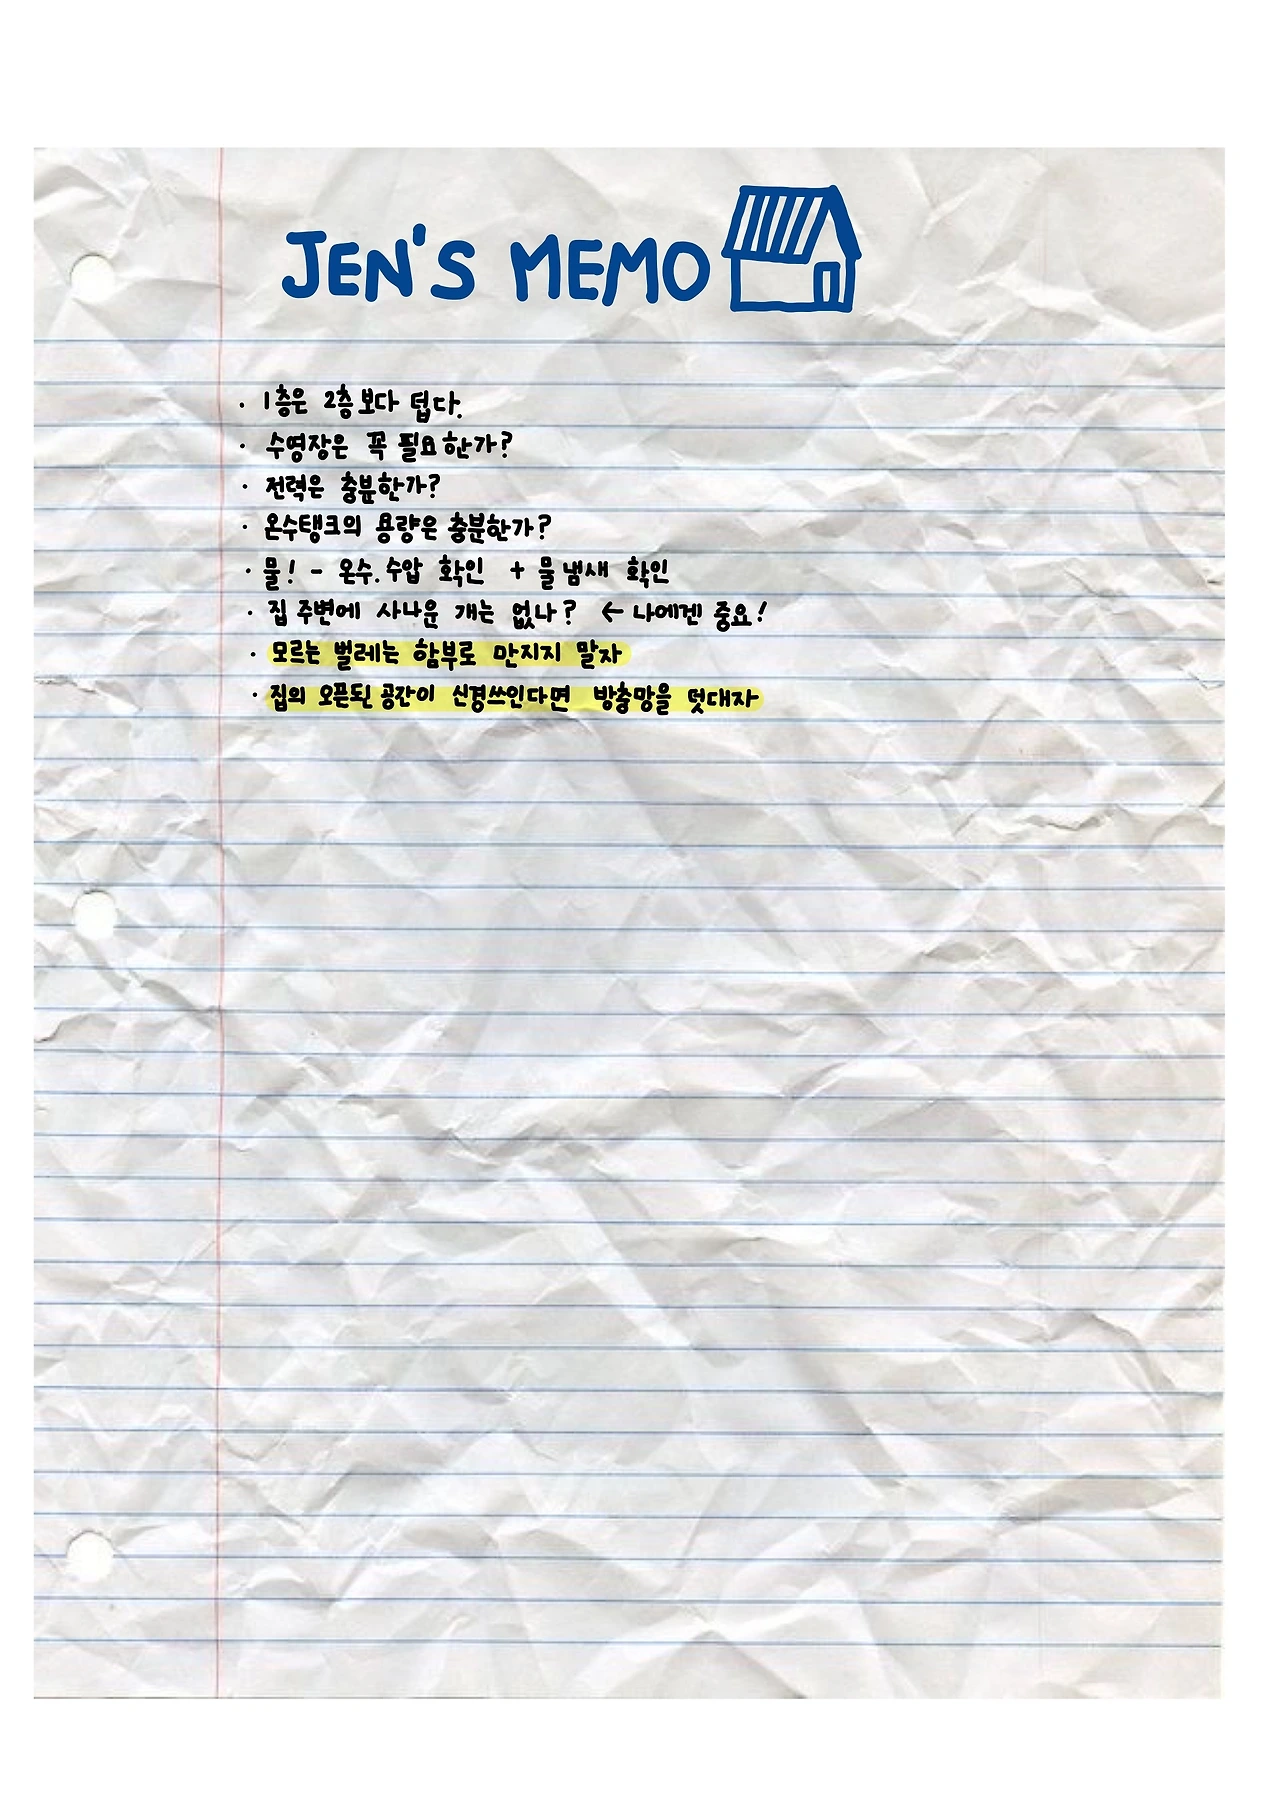 JEN'S MEMO
· 1층은 2층보다 덥다.
· 수영장은 꼭 필요한가?
· 전력은 충분한가?
· 온수탱크의 용량은 충분한가?
· 물! - 온수. 수압 확인 + 물 냄새 확인
· 집 주변에 사나운 개는 없나? ← 나에겐 중요!
· 모르는 벌레는 함부로 만지지 말자
· 집의 오픈된 공간이 신경쓰인다면 방충망을 덧대자